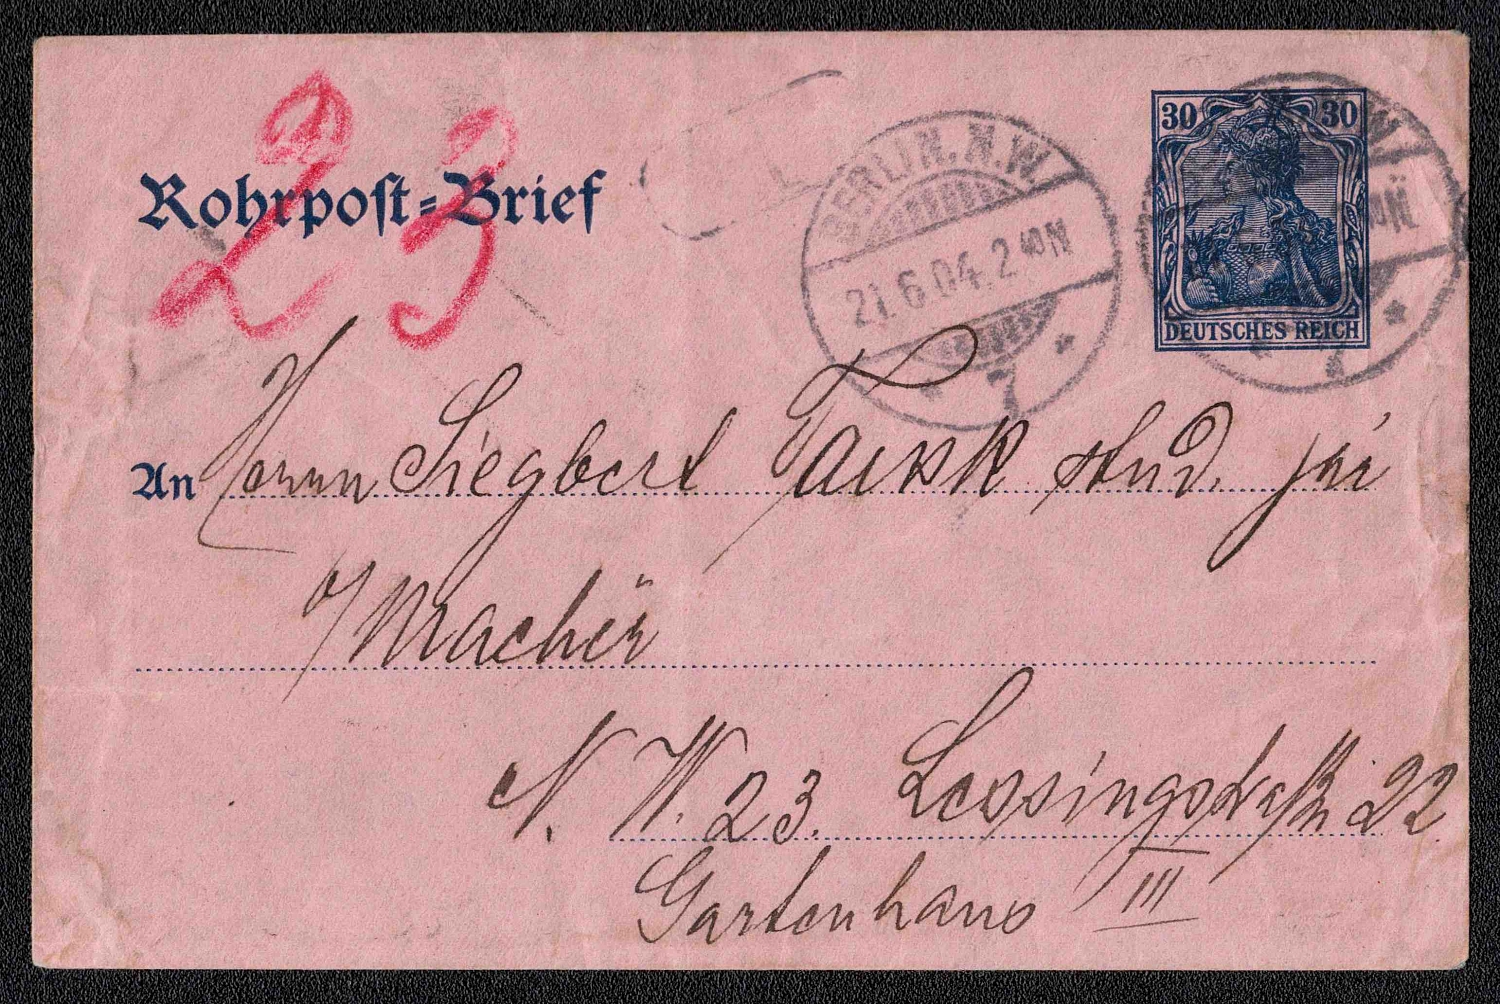 23
Rohrpoſt-Brief
BERLIN. N.W.
21.6.04. 2-3N
* 7 *
30 30
DEUTSCHES REICH
An Herrn Siegbert stud. jur
b/
N. W. 23. Lessingstraße 22
Gartenhaus III